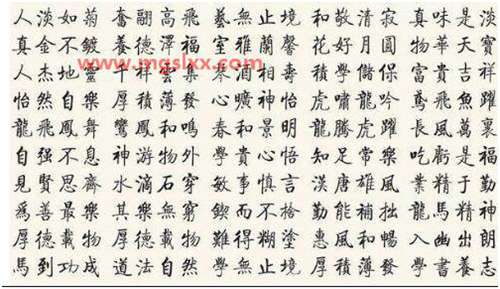 人淡如菊 奮翮高飛 藝無止境 和敬清寂 真味是淡
真金不鍍 養德澤福 室雅蘭馨 花好月圓 物華天寶
www.mgslxx.com
人杰地靈 千祥雲集 心酒相壽 學儲保 富貴吉祥
怡然自樂 厚積薄發 心曠神怡 虎嘯龍吟 鳶飛魚躍
龍飛鳳舞 鸞鳳和鳴 春和景明 龍騰虎躍 長風萬裏
自强不息 神游物外 學貴心悟 知足常樂 吃虧是福
見賢思齊 水滴石穿 敏事慎言 漢唐雄風 業精于勤
爲善最樂 其樂無窮 而不捨 勤能補拙 龍馬精神
厚德載物 厚德載物 難得糊塗 惠風和暢 入幽出朗
馬到功成 道法自然 學無止境 厚積薄發 學書養志